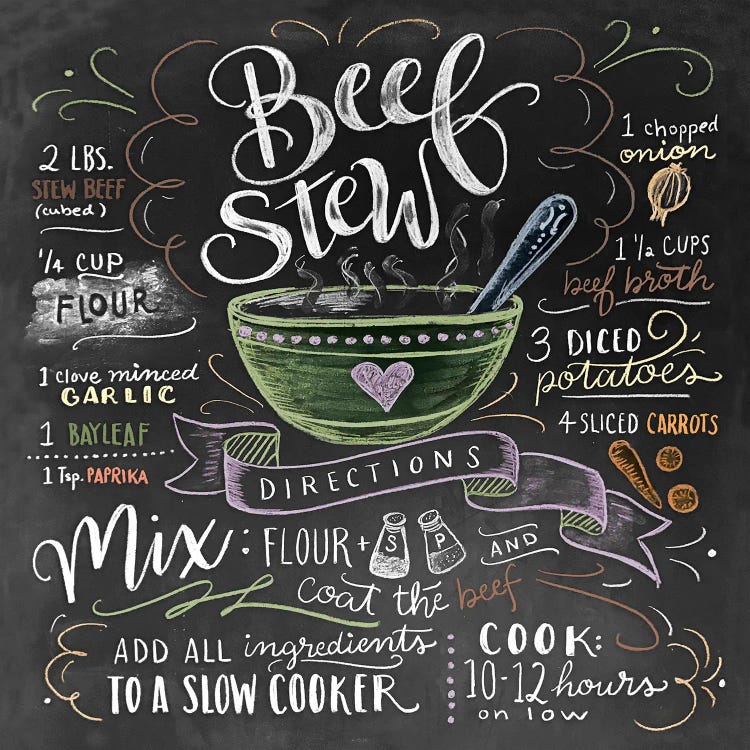 Beef
Stew
2 LBS.
STEW BEEF
(cubed)
1/4 CUP
FLOUR
1 clove minced
GARLIC
1 BAYLEAF
1 Tsp. PAPRIKA
1 chopped
onion
1 1/2 CUPS
beef broth
3 DICED
potatoes
4 SLICED CARROTS
DIRECTIONS
Mix: FLOUR + S P AND
coat the beef
ADD ALL ingredients
TO A SLOW COOKER
COOK:
10-12 hours
on low